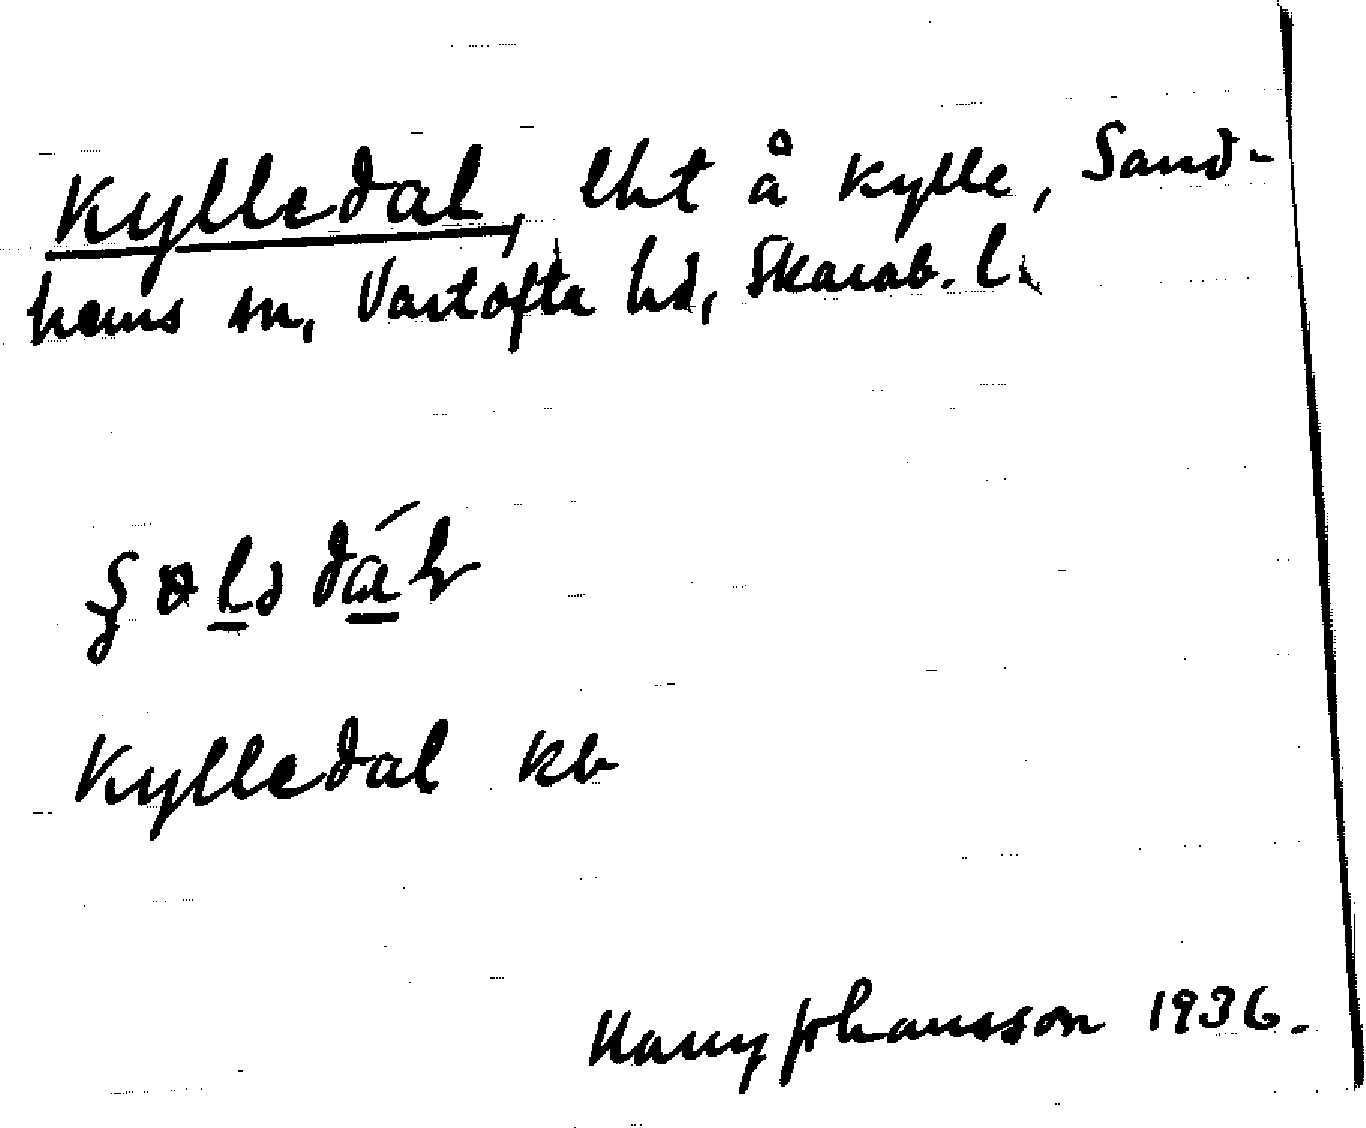 Kylledal, lht å Kylle, Sand-
hems sn, Vartofta hd, Skarab. l.
Kylledal kb
Harry Johansson 1936.